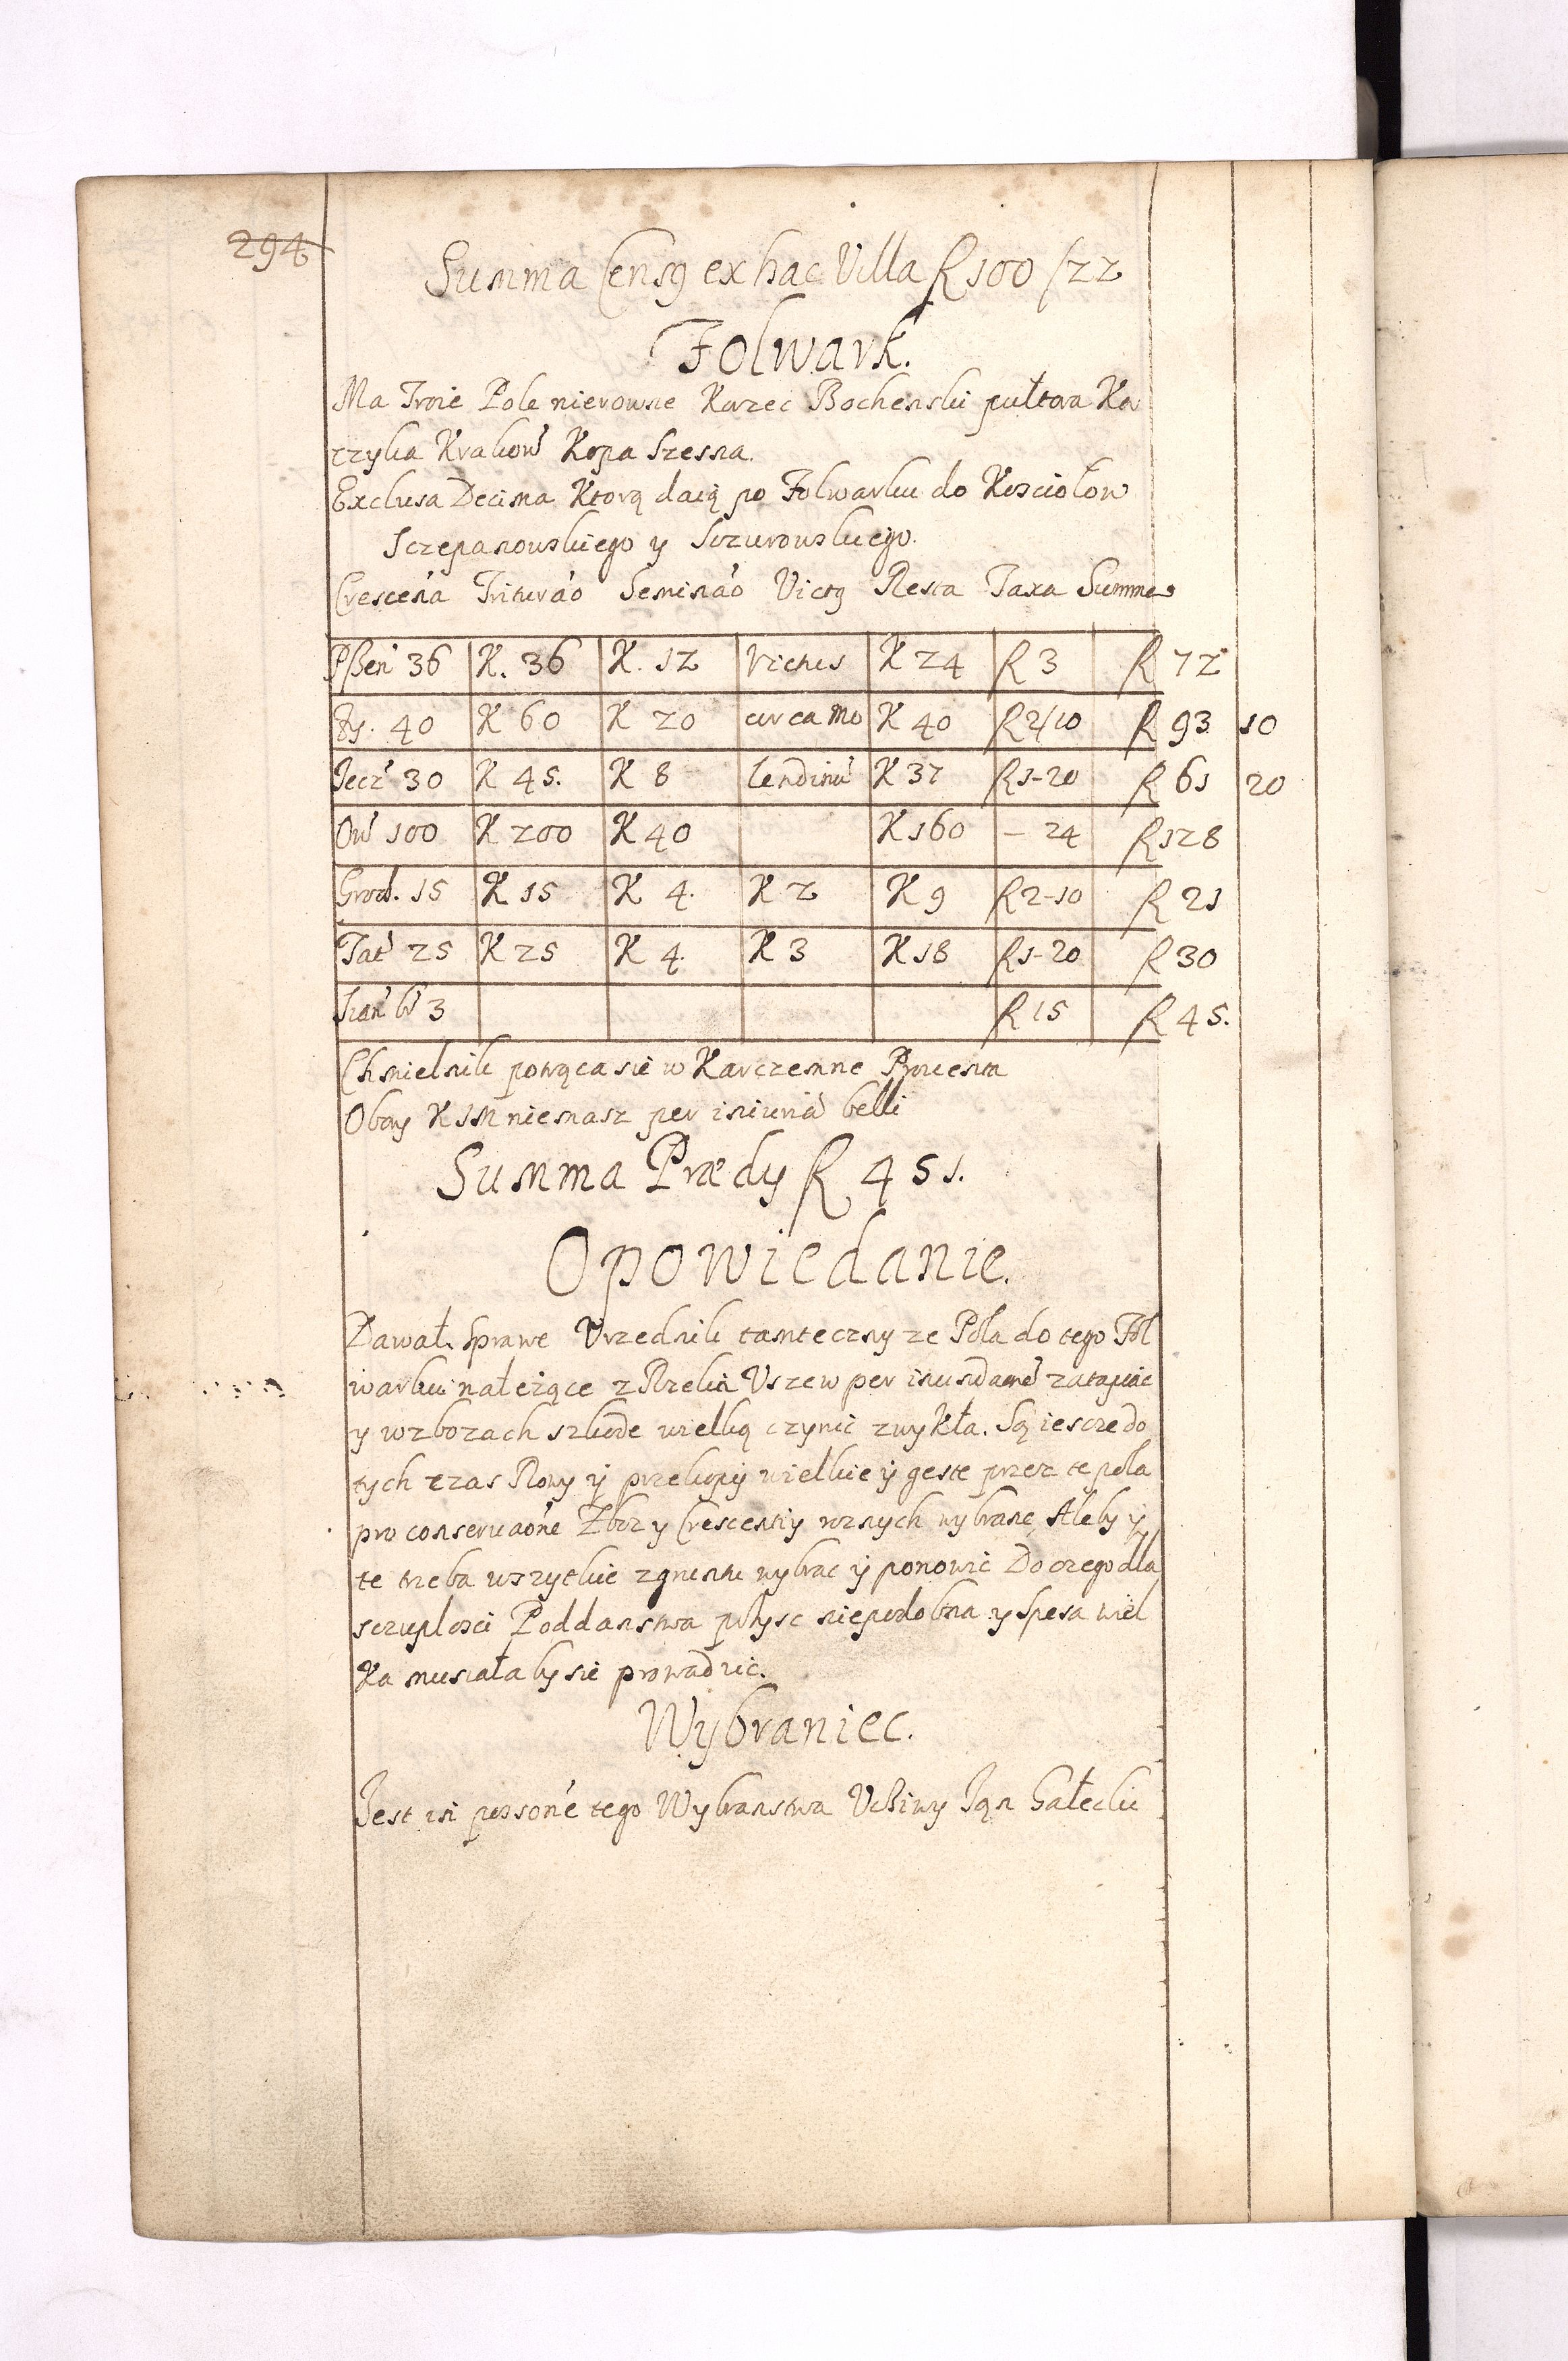 294
Summa Censꝯ ex hac Villa R 100 / 22
Folwark.
Ma Troie Pole nierowne Korzec Bochenski pułtora Ko
rzyka Krakow Kopa Szesna.
Exclusa Decima Ktorą daią po Folwarku do Kosciołow
Sczepanowskiego y Sczurowskiego.
Crescen̄a Triturāo Semināo Victꝯ Resta Taxa Summa
Pßen 36 K. 36 K. 12 Victus K 24 R 3 R 72
Zy. 40 K 60 K 20 circa mo K 40 R 2/10 R 93 10
Jecz 30 K 45. K 8 lendinu K 37 R 1-20 R 61 20
Ow 100 K 200 K 40 K 160 - 24 R 128
Groch. 15 K 15 K 4. K 2 K 9 R 2-10 R 21
Tat 25 K 25 K 4. K 3 K 18 R 1-20 R 30
3 R 15 R 45.
Chmielnik potrąca sie w Karczemne
Obory niemasz per iniuriā belli
Summa Prædy R 451.
Opowiedanie.
Dawał Sprawe Vrzednik tamteczny ze Pola do tego Fol
warku należące z Rzeka Vszew per inundaone zatapiac
y w zbozach szkode wielką czynic zwykła. Są iescze do
tych czas Rowy ij przekopij wielkie ij geste przez te pola
pro conservaone Zboz y Crescentiy roznych wybrane, Aleby y
te trzeba wszytkie z gruntu wybrac ij ponowic Do czego dla
sczuplosci Poddanstwa niepodobna y Spesa wiel
Ka musiałaby sie prowadzic.
Wybraniec.
Jest in possone tego Wybranstwa Jan Gałecki